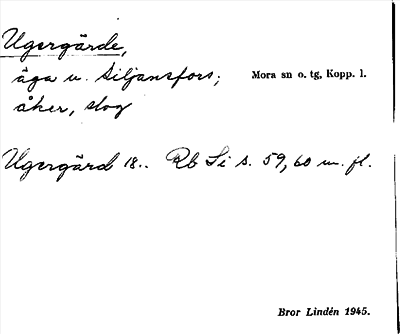 Ugsrgärde,
äga u. Siljansfors; Mora sn o. tg, Kopp. l.
åker, slog
Ugsrgärd 18.. Rb Si s. 59, 60 m. fl.
Bror Lindén 1945.